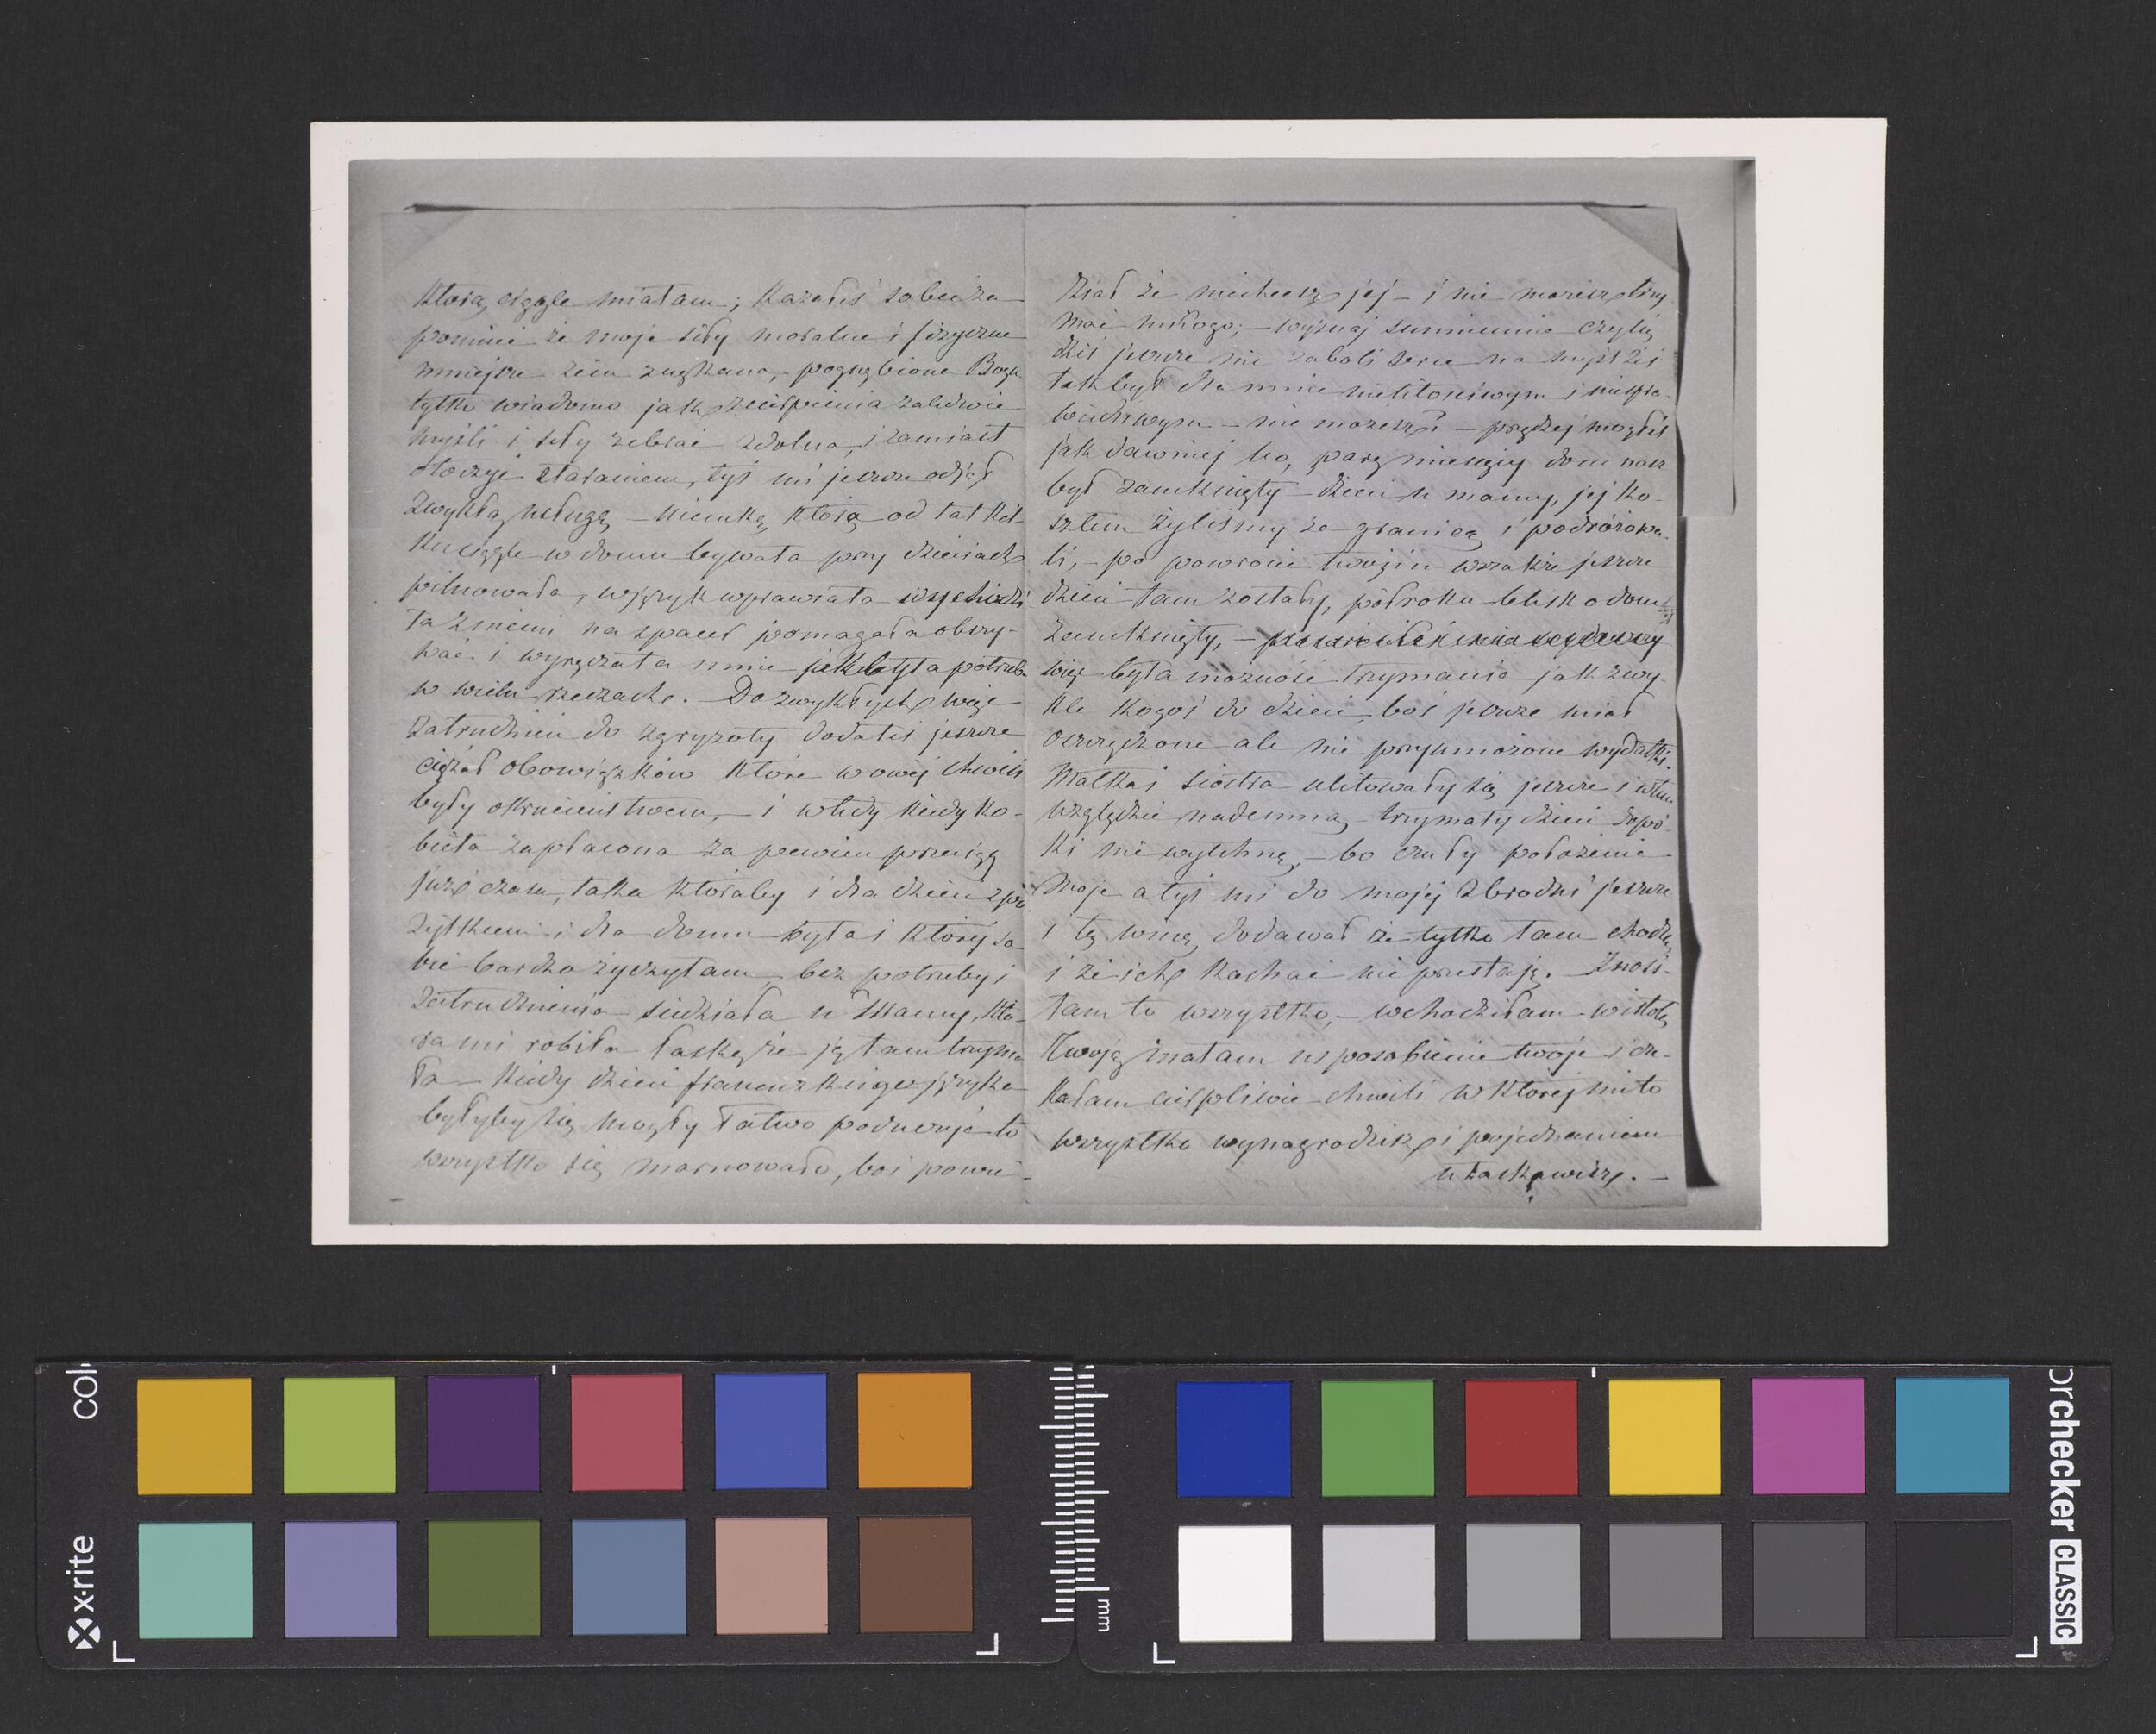 którą ciągle miałam; kazałeś sobie za-
pomnieć że moje siły moralne i fizyczne
mniejsze znękane, pognębione Bogu
tylko wiadomo jak zaledwie
myśli i siły zebrać zdolna, i zamiast
staraniem, tyś mi jeszcze odjął
zwykłą usługę, – Niemkę, którą od lat kil-
ku ciągle w domu bywała przy dzieciach
pilnowała, w język wprawiała wychodzi
ła z niemi na spacer pomagała obszy-
wać i wyręczała mnie jak była potrzeba
w wielu rzeczach. Do zwykłych więc
zatrudnień do zgryzoty dodałeś jeszcze
ciężar obowiązków które w owej chwili
były okrucieństwem, – i wtedy kiedy ko-
bieta zapłacona za
czasu, taka któraby i dla dzieci z po
żytkiem i dla domu była i której so-
bie bardzo życzyłam, bez potrzeby i
zatrudnienia siedziała u Mamy, któ-
ra mi robiła łaskę że ją tam trzyma
ła – kiedy dzieci francuzkiego języka
byłyby się mogły łatwo poduczyć to
wszystko się marnowało, boś powie-
dział że niechcesz jej – i nie możesz trzy
mać nikogo; – wyznaj sumiennie czylię
dziś jeszcze nie zaboli serce na myśl żeś
tak był dla mnie nielitościwym i niespra-
wiedliwym – nie możesz? – prędzej mogłeś
jak dawniej bo, parę miesięcy dom nasz
był zamknięty – dzieci u mamy, jej ko-
sztem żyliśmy za granicą i podróżowa-
li, – po powrocie twoim wszakże jeszcze
dzieci tam zostały, półroku blisko dom
zamknięty, –
więc była możność trzymania jak zwy-
kle kogoś do dzieci, boś jeszcze miał
oszczędzone ale nie przymnożone wydatki.
Matka i siostra ulitowały się jeszcze i w tym
względzie nademną, – trzymały dzieci dopó-
ki nie wytchnę, – bo czuły położenie
moje a tyś mi do mojej zbrodni jeszcze
i tę winę dodawał że tylko tam chodzę
i że ich kochać nie przestaję. – Znosi-
łam to wszystko, – wchodziłam w istotę
Twoją znałam usposobienie twoje i cze-
kałam cierpliwie chwili w której mi to
wszystko wynagrodzisz i pojednaniem
.–